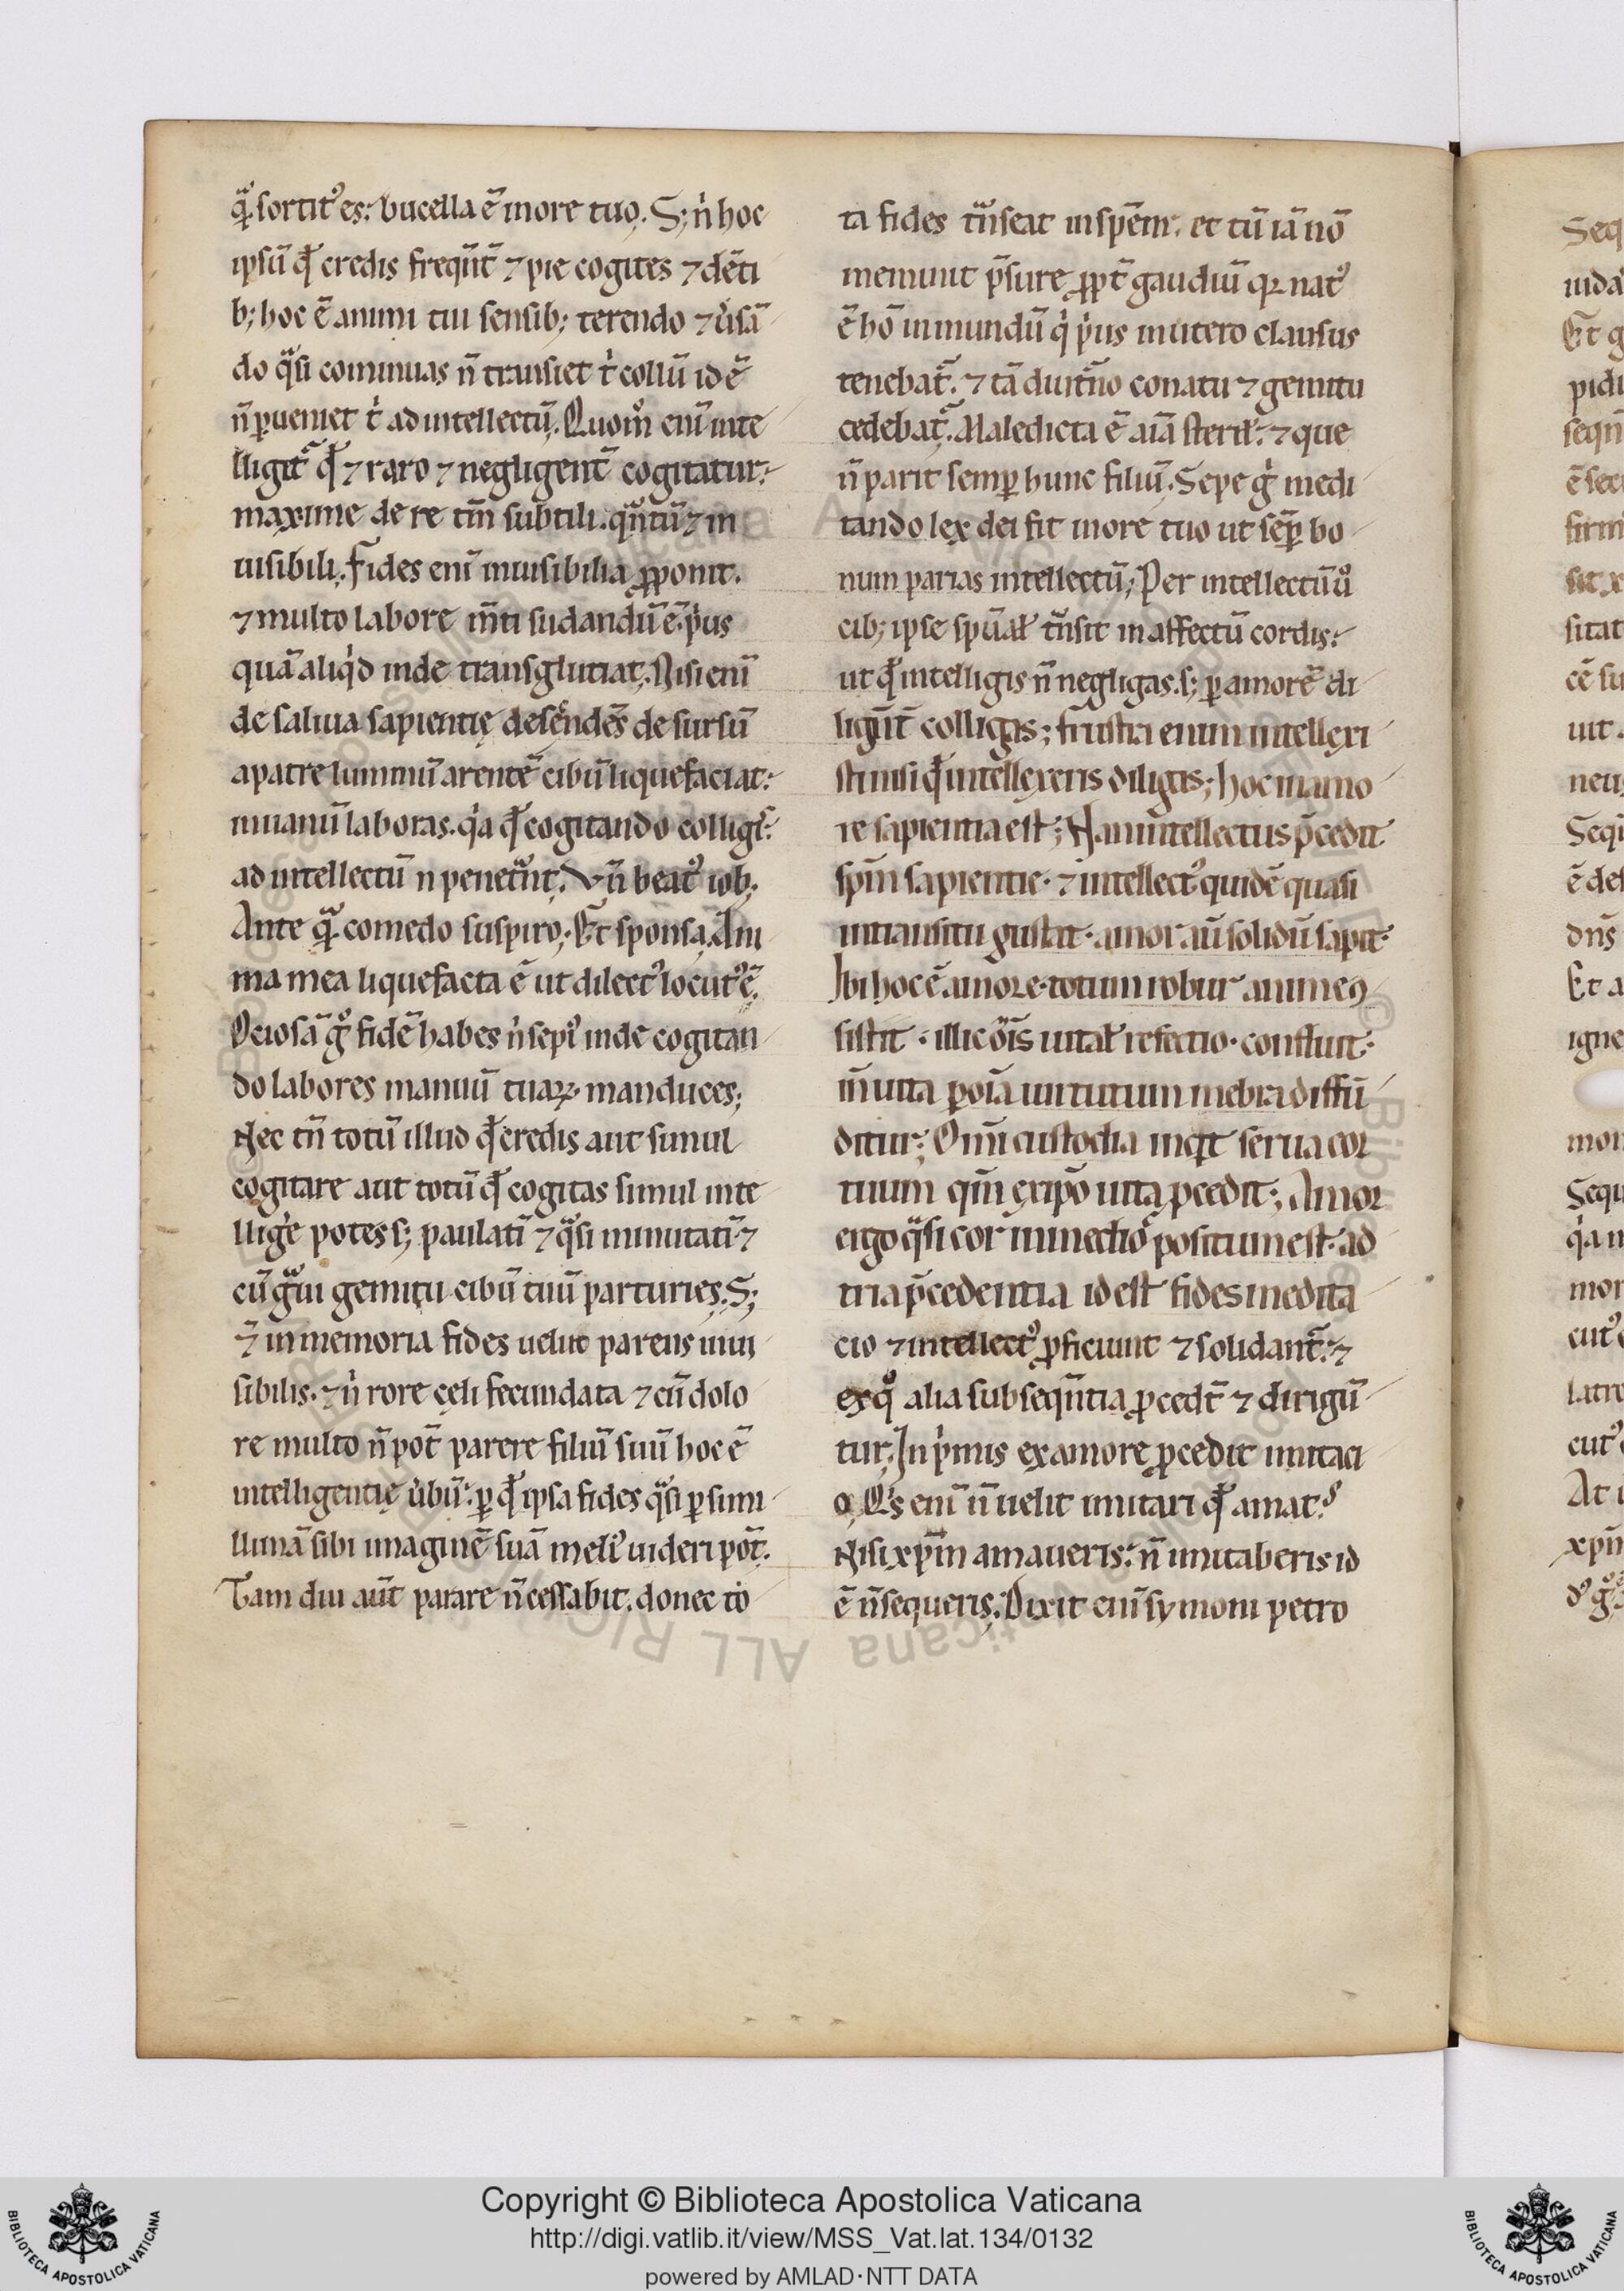 q̃ sortit᷒ es: bucella ē in ore tuo. S; ń hoc
ipsū qđ credis freqñt̄ ⁊ pie cogites ⁊ dēti
b; hoc ē animi tui sensib; terendo ⁊ ůsā
do qͣsi cominuas n̄ transiet ť collū id ē
n̄ ꝑueniet ť ad intellectū. Quom̊ enī inte
lligit᷑ qđ ⁊ raro ⁊ negligent̄ cogitatur:
maxime de re tm̄ subtili. qͣntū ⁊ in
uisibili. Fides enī inuisibilia ꝓponit.
⁊ multo labore m̄ti sudandū ē. pͥus
quā aliqͥd inde transglutiat. Nisi enī
de saliua sapientię desēndēs de sursū
a patre luminū arentē cibū liquefaciat:
inuanū laboras. qͥa qđ cogitando colligis:
ad intellectū n̄ penetͣnt. Vn̄ beat᷒ iob;
Ante q̃ comedo suspiro; Et sponsa. Ani
ma mea liquefacta ē ut dilect᷒ locut᷒ ē.
Ociosā gͦ fidē habes ń sepi᷒ inde cogitan
do labores manuū tuaꝝ manduces;
Nec tn̄ totū illud qđ credis aut simul
cogitare aut totū qđ cogitas simul inte
lligē potes s; paulatī ⁊ qͣsi minutatī ⁊
cū gͣui gemitu cibū tuū parturies. S;
⁊̄ in memoria fides uelut parens inui
sibilis. ⁊ ń rore cęli fecundata ⁊ cū dolo
re multo n̄ pot̄ parere filiū suū hoc ē
intelligentię ůbū: ꝑ qđ ipsa fides qͣsi ꝑ simi
llimā sibi imaginē suā meli᷒ uideri pot̄.
Tam diu aūt parare n̄ cessabit. donec to
ta fides tͣnseat in spēm: et tū iā nō
meminit p̄sure ꝓpt̄ gaudiū qꝛ nat᷒
ē hō in mundū qͥ pͥus in utero clausus
tenebat᷑. ⁊ tā diut̄no conatu ⁊ gemitu
cedebat᷑. Maledicta ē aīa steril᷒: ⁊ que
n̄ parit semꝑ hunc filiū. Sepe gͥ medi
tando lex dei fit in ore tuo ut sēꝑ bo
num parias intellectū; Per intellectū ů
cib; ipse spūaƚ tͣnsit in affectū cordis:
ut qđ intelligis n̄ negligas. s; ꝑ amorē di
ligñt̄ colligas; frustra enim intellexi
sti nisi qđ intellexeris diligas; hoc in amo
re sapientia est; Nam intellectus p̄cedit
spm̄ sapientie· ⁊ intellect᷒ quidē quasi
in transitu gustat· amor aū solidū sapit·
Ibi hoc ē amore· totum robur anime ꝯ
sistit· illic oīs uitaƚ refectio· confluit·
īn uita ꝑ oīa uirtutum mēbra diffū
ditur; Omī custodia inqt serua cor
tuum qm̄ ex ip̄o uita ꝓcedit; Amor
ergo qͣsi cor in medio positum est· ad
tria p̄cedentia id est fides medita
cio ⁊ intellect᷒ ꝓficiunt ⁊ solidant᷑. ⁊
ex qͦ alia subseqñtia ꝓcedt̄ ⁊ dirigū
tur. In pͥmis ex amore ꝓcedit imitaci
o. Qͥs enī n̄ uelit imitari qđ amat?
Nisi xp̄m amaueris: n̄ imitaberis id
ē n̄ sequeris. Dixit enī symoni petro
Copyright © Biblioteca Apostolica Vaticana
http://digi.vatlib.it/view/MSS_Vat.lat.134/0132
powered by AMLAD·NTT DATA
BIBLIOTECA APOSTOLICA VATICANA
BIBLIOTECA APOSTOLICA VATICANA